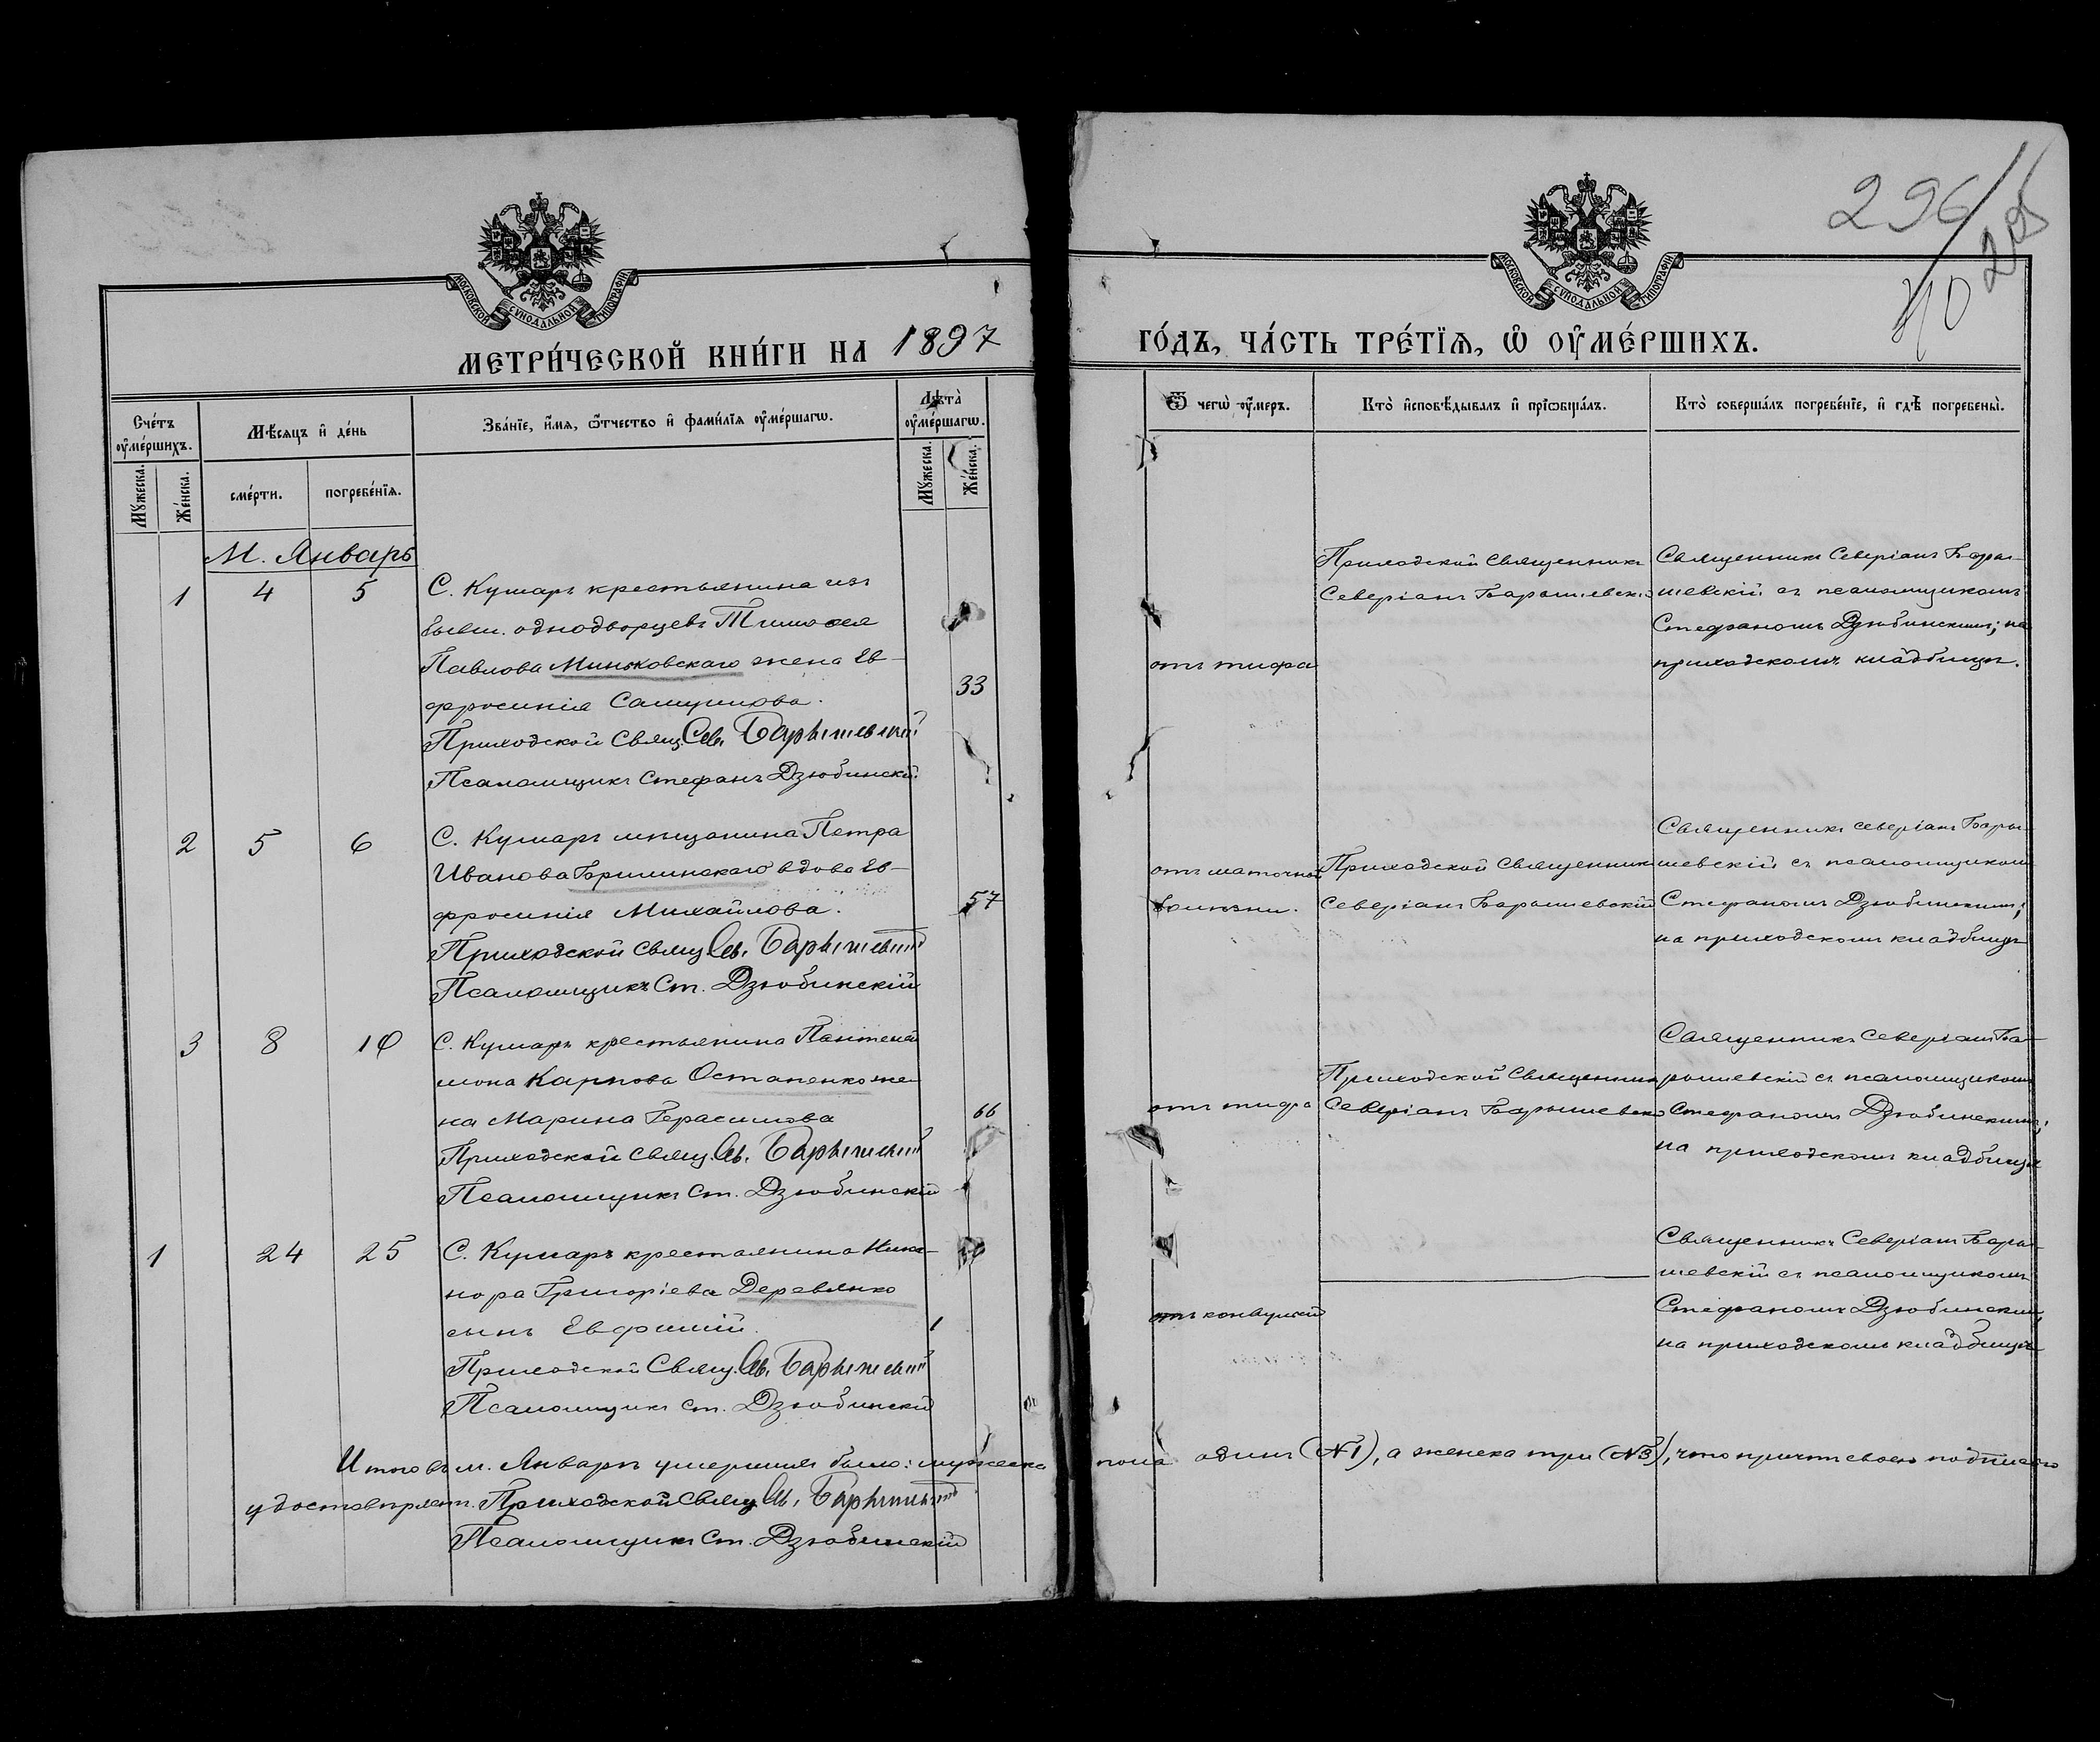 296
40
МОСКОВСКОЙ СУНОДАЛЬНОЙ ТИПОГРАФІИ
МОСКОВСКОЙ СУНОДАЛЬНОЙ ТИПОГРАФІИ
МЕТРИ́ЧЕСКОЙ КНИ́ГИ НА 1897
ГО́ДЪ, ЧА́СТЬ ТРЕ́ТЇѦ, Ѡ҆ ОУ҆МЕ́РШИХЪ.
Сче́тъ оу҆ме́ршихъ.
Мѣ́сяцъ и҆ де́нь
Зва́нїе, и҆́мѧ, ѻ҆́тчество и҆ фами́лїѧ оу҆ме́ршагѡ.
Лѣ́та̀ оу҆ме́ршагѡ.
Ѿ чегѡ̀ оу҆́меръ.
Кто̀ и҆сповѣ́дывалъ и҆ прїѡбща́лъ.
Кто̀ соверша́лъ погребе́нїе, и҆ гдѣ̀ погребены̀.
Мꙋ́жеска.
Же́нска.
сме́рти.
погребе́нїѧ.
Мꙋ́жеска.
Же́нска.
М. Январь
1 4 5
С. Кумарь крестьянина изъ
бывш. однодворцевъ Тимофея
Павлова Миньковскаго жена Ев-
фросинія Самуилова.
33
Приходской Свящ. Сев. Барышевскій
Псаломщикъ Стефанъ Дзюбинскій.
отъ тифа
Приходской Священникъ
Северіанъ Барышевскій
Священникъ Северіанъ Бары-
шевскій съ псаломщикомъ
Стефаномъ Дзюбинскимъ; на
приходскомъ кладбищѣ.
2 5 6
С. Кумарь мѣщанина Петра
Иванова вдова Ев-
фросинія Михайлова.
57
Приходской Свящ. Сев. Барышевскій
Псаломщикъ Ст. Дзюбинскій
отъ маточной
болѣзни.
Приходской Священникъ
Северіанъ Барышевскій
Священникъ Северіанъ Бары-
шевскій съ псаломщикомъ
Стефаномъ Дзюбинскимъ;
на приходскомъ кладбищѣ
3 8 10
С. Кумарь крестьянина Пантелей-
мона Карпова Остапенко же-
на Марина Герасимова
66
Приходской Свящ. Сев. Барышевскій
Псаломщикъ Ст. Дзюбинскій
отъ тифа
Приходской Священникъ
Северіанъ Барышевскій
Священникъ Северіанъ Ба-
рышевскій съ псаломщикомъ
Стефаномъ Дзюбинскимъ;
на приходскомъ кладбищѣ
1 24 25
С. Кумарь крестьянина Ника-
нора Григоріева Деревянко
сынъ Евфимій.
1
Приходской Свящ. Сев. Барышевскій
Псаломщикъ Ст. Дзюбинскій
отъ конвульсій
Священникъ Северіанъ Бары-
шевскій съ псаломщикомъ
Стефаномъ Дзюбинскимъ,
на приходскомъ кладбищѣ
Итого въ м. Январѣ умершихъ было: мужеска пола одинъ (№1), а женска три (№3), что причтъ своею подписью
удостовѣряетъ. Приходской Свящ. Сев. Барышевскій
Псаломщикъ Ст. Дзюбинскій